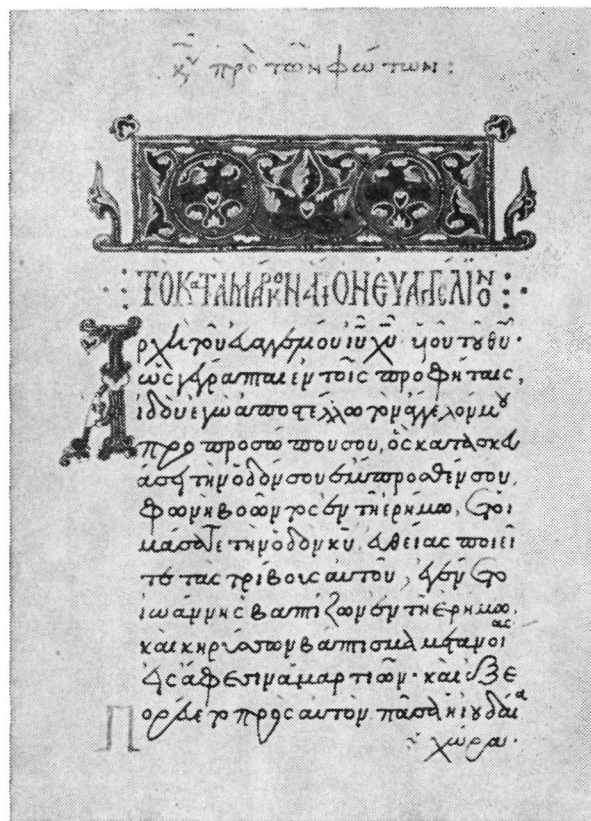 κυ πρὸ τῶν φώτων :
ΤΟ ΚΑΤΑ ΜΑΡΚΟΝ ΑΓΙΟΝ ΕΥΑΓΓΕΛΙΟΝ
Ἀρχὴ τοῦ εὐαγγελίου ιυ χυ υἱοῦ τοῦ θυ·
ὡς γέγραπται ἐν τοῖς προφήταις,
ἰδοὺ ἐγὼ ἀποστέλλω τὸν ἄγγελόν μου
πρὸ προσώπου σου, ὃς κατασκευ
άσει τὴν ὁδόν σου ἔμπροσθέν σου.
φωνὴ βοῶντος ἐν τῇ ἐρήμω, ἑτοι
μάσατε τὴν ὁδὸν κυ, εὐθείας ποιεῖ
τε τὰς τρίβους αὐτοῦ, ἐγένετο
ἰωάννης βαπτίζων ἐν τῇ ἐρήμω,
καὶ κηρύσσων βάπτισμα μετανοίας
εἰς ἄφεσιν ἁμαρτιῶν· καὶ ἐξε
πορεύετο πρὸς αὐτὸν πᾶσα ἡ ἰουδαία
χώρα·